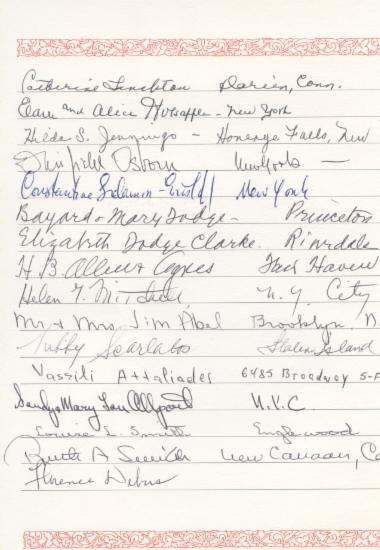 Catherine Lineston Darien, Conn.
and Alice - New York
Hilda S. Jennings - Honeoye Falls, New
Osborn New York —
Constantine New York
Bayard & Mary Dodge - Princeton
Elizabeth Dodge Clarke. Riverdale
H. B. Allen & Agnes Fair Haven
Helen N.Y. City
Mr & Mrs Jim Abel Brooklyn. N.
Scarlatos Staten Island
Vassili Attaliades 6485 Broadway 5-F
Sandy & Mary Lou Allport N.Y.C.
Louise L. Smith Englewood
Ruth A New Canaan, Co
Florence